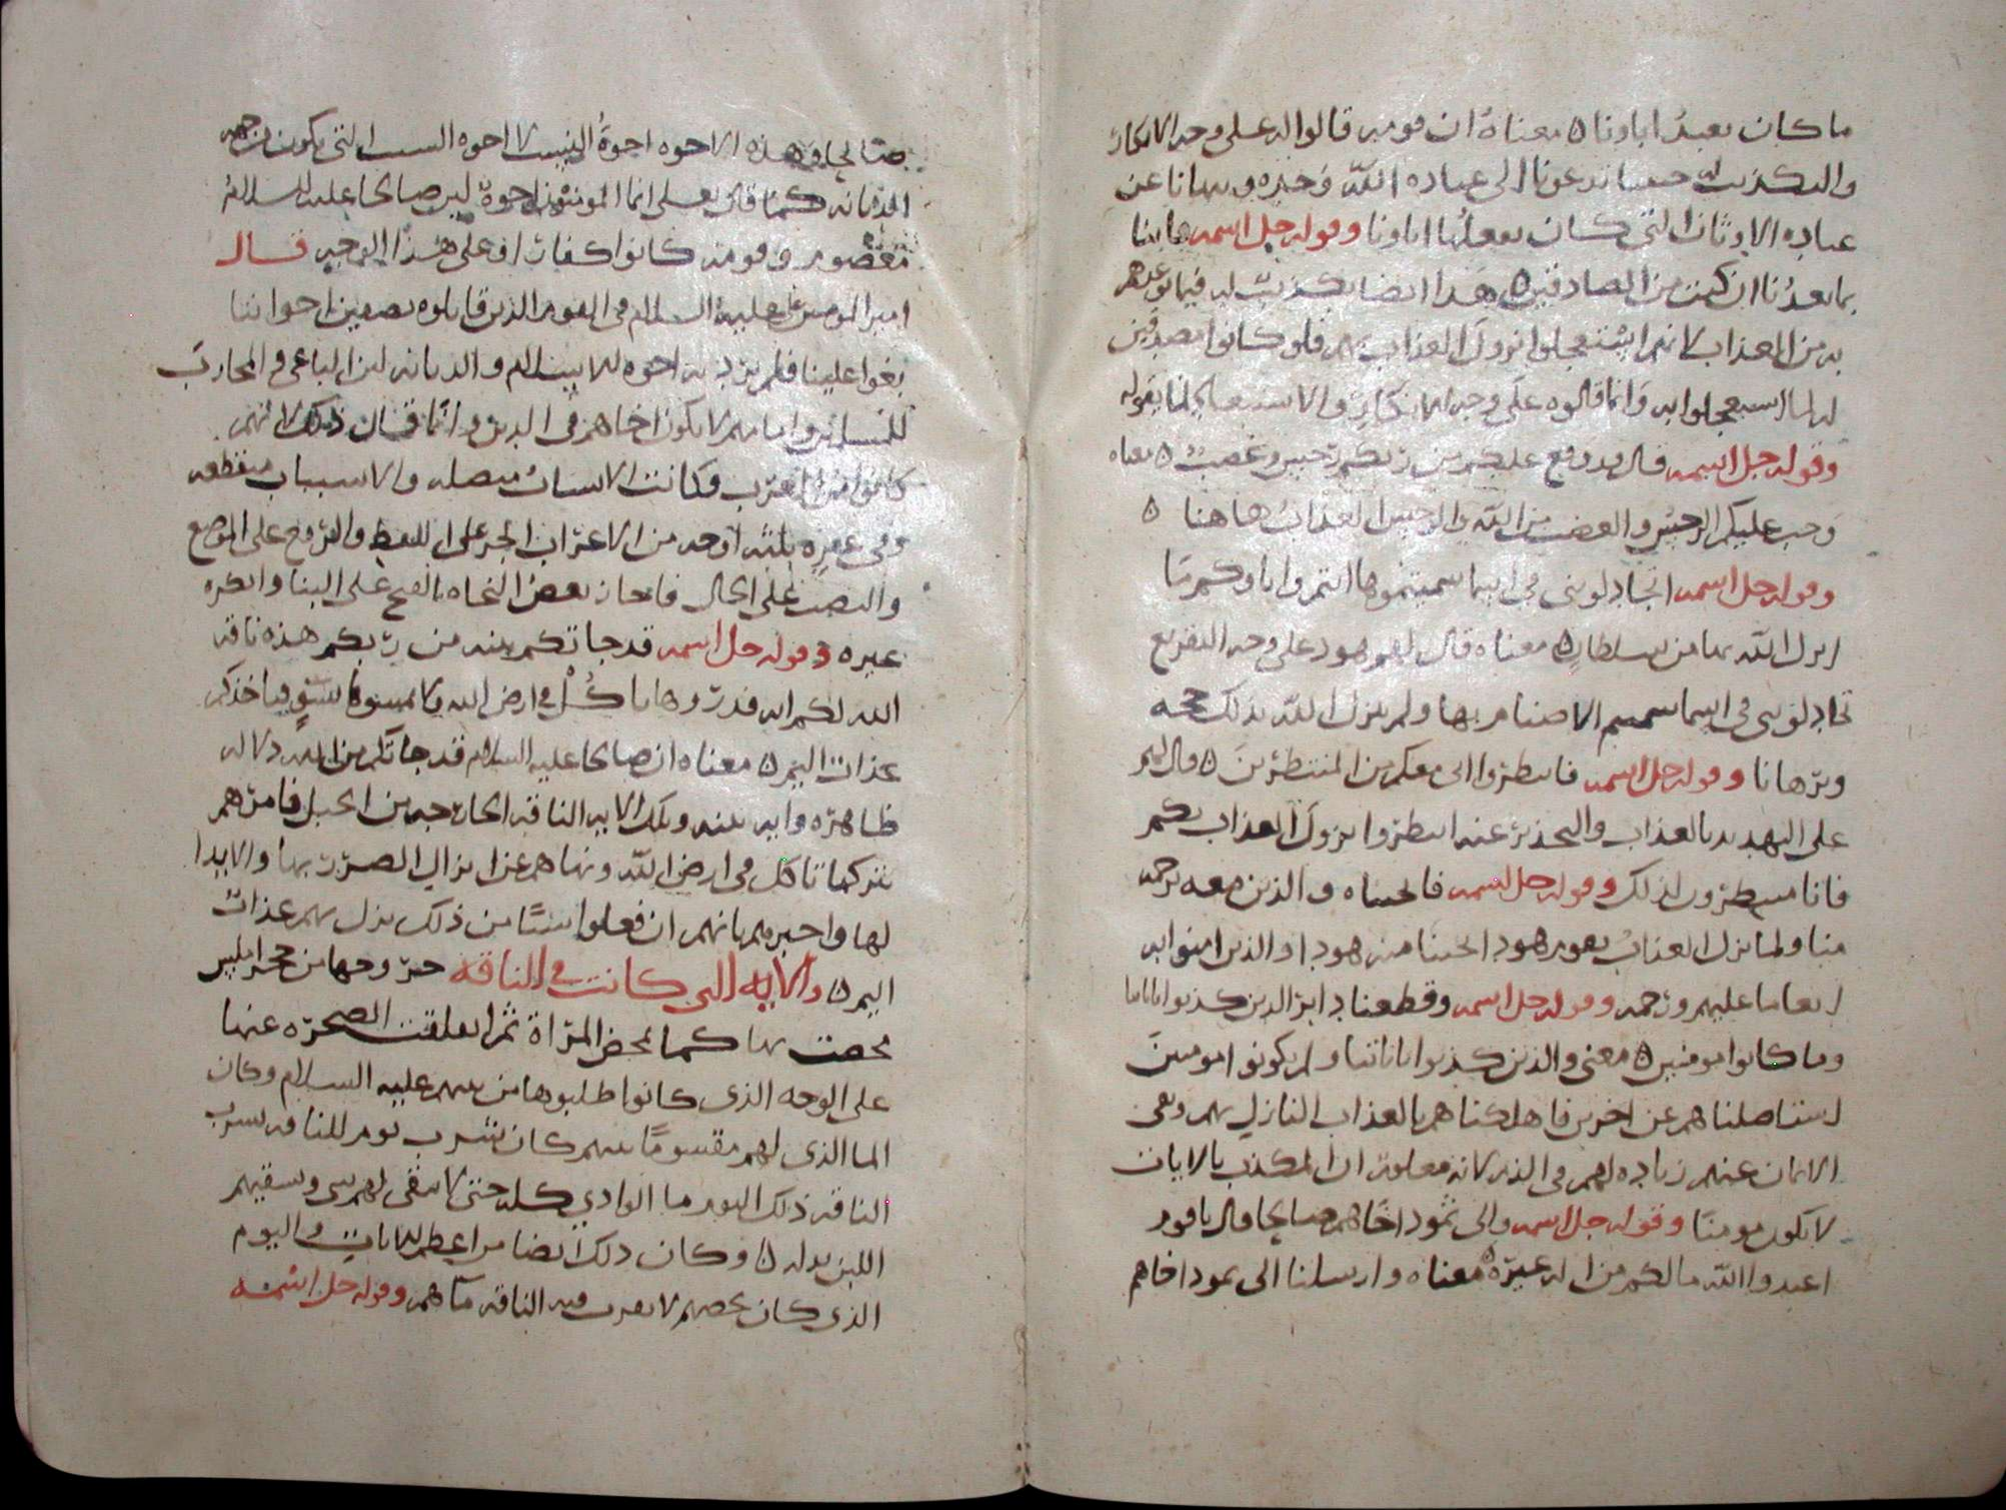 ما كان يعبد اباونا ه معناه ان قومه قالوا له على وجه الانكار
والتكذيب له جيتنا تدعونا الى عباده الله وحده وتنهانا عن
عباده الاوثان التي كان يفعلها اباونا وقوله جل اسمه فاتنا
بما تعدنا ان كنت من الصادقين ه هذا ايضا تكذيب له فيما توعدهم
به من العذاب لانهم استعجلوا نزول العذاب بهم فلو كانوا مصدقين
له لما استعجلوا به وانما قالوه على وجه الانكار والاستبعاد لما يقوله
وقوله جل اسمه قال قد وقع عليكم من ربكم رجس وغضب ه معناه
وجب عليكم الرجس والغضب من الله والرجس العذاب هاهنا ه
وقوله جل اسمه اتجادلونني في اسما سميتموها انتم واباوكم ما
انزل الله بها من سلطان ه معناه قال لهم هود على وجه التقريع
تجادلونني في اسما سميتم الاصنام بها ولم ينزل الله بذلك حجه
وبرهانا وقوله جل اسمه فانتظروا اني معكم من المنتظرين ه قال لهم
على التهديد بالعذاب والتحذير عنه انتظروا نزول العذاب بكم
فانا منتظرون لذلك وقوله جل اسمه فانجيناه والذين معه برحمه
منا ولما نزل العذاب بقوم هود انجينا منه هودا والذين امنوا به
انعاما عليهم ورحمه وقوله جل اسمه وقطعنا دابر الذين كذبوا باياتنا
وما كانوا مومنين ه معنى والذين كذبوا باياتنا ولم يكونوا مومنين
استاصلناهم عن اخرهم فاهلكناهم بالعذاب النازل بهم ونفى
الايمان عنهم زياده لهم في الذم لانه معلوم ان المكذب بالايات
لا يكون مومنا وقوله جل اسمه والى ثمود اخاهم صالحا قال يا قوم
اعبدوا الله ما لكم من اله غيره ه معناه وارسلنا الى ثمود اخاهم
صالحا وهذه الاخوه اخوة النسب لا اخوه السبب التي يكون من جهه
الديانه كما قال تعالى انما المومنون اخوة لان صالحا عليه السلام
معصوم وقومه كانوا كفارا وعلى هذا الوجه قال
امير المومنين علي عليه السلام في القوم الذين قاتلوه بصفين اخواننا
بغوا علينا فلم يرد به اخوه الاسلام والديانه لان الباغي والمحارب
للمسلمين وامامهم لا يكون اخاهم في الدين وانما قال ذلك لانهم
كانوا من العرب وكانت الانساب متصله والاسباب منقطعه
وفي غيره ثلثه اوجه من الاعراب الجر على اللفظ والرفع على الموضع
والنصب على الحال فاجاز بعض النحاه الفتح على البنا وانكره
غيره وقوله جل اسمه قد جاتكم بينه من ربكم هذه ناقه
الله لكم ايه فذروها تاكل في ارض الله ولا تمسوها بسو فياخذكم
عذاب اليم ه معناه ان صالحا عليه السلام قد جاتكم من الله دلاله
ظاهره وايه بينه وتلك الايه الناقه الخارجه من الجبل فامرهم
بتركها تاكل في ارض الله ونهاهم عن انزال الضرر بها والايذا
لها واخبرهم بانهم ان فعلوا شيئا من ذلك نزل بهم عذاب
اليم ه والايه التي كانت في الناقه خروجها من حجر املس
تمخضت بها كما تمخض المراة ثم انفلقت الصخره عنها
على الوجه الذي كانوا طلبوها من نبيهم عليه السلام وكان
الما الذي لهم مقسوما بينهم كان شرب يوم للناقه تشرب
الناقه ذلك اليوم ما الوادي كله حتى لا يبقى لهم شي وتسقيهم
اللبن بدله ه وكان ذلك ايضا من اعظم الايات واليوم
الذي كان يخصهم لا تقرب فيه الناقه ماهم وقوله جل اسمه